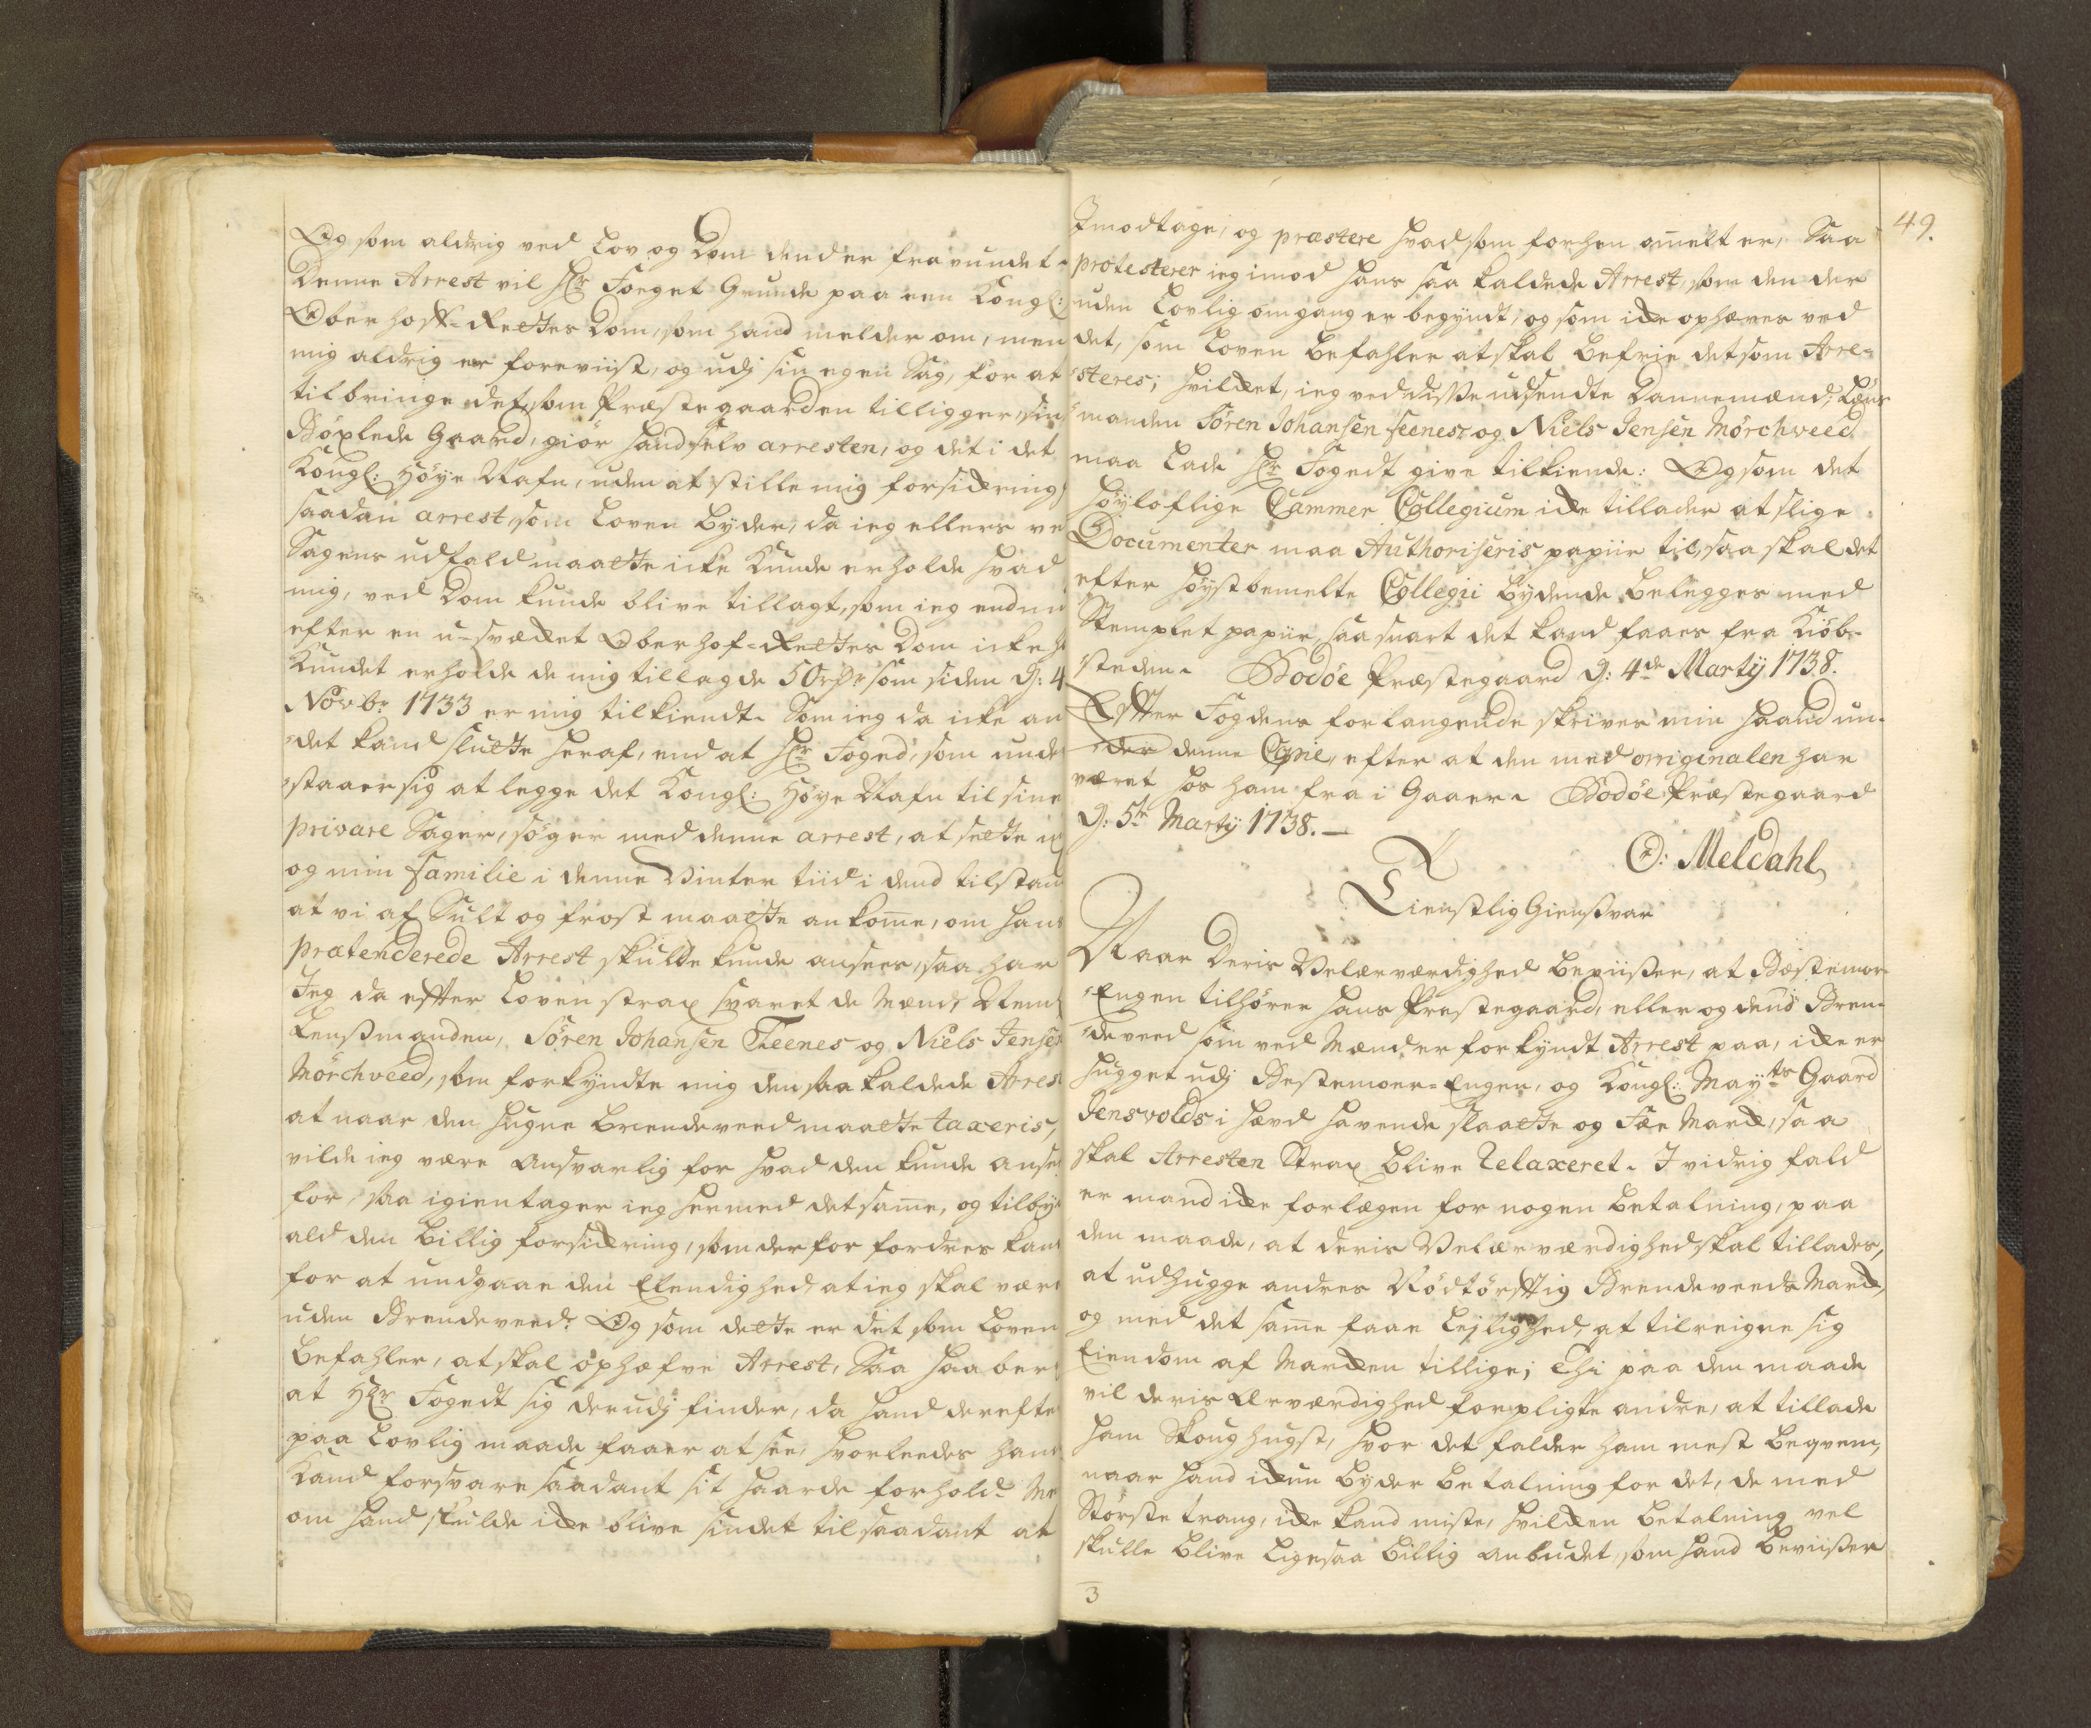 Og som aldrig ved Lov og Dom dend er fravundet.
Denne Arrest vil Hr Foeget Grunde paa een Kongl:
Oberhoff-Rettes Dom, som hand melder om, men
mig aldrig er foreviist, og udj sin egen Sag, for at
tilbringe det, som Præstegaarden tilligger, sin
Böxlede Gaard, giör hand selv arresten, og det i det
Kongl: Höye Nafn, uden at stille mig forsickring
saadan arrest, som Loven byder, da ieg ellers ve
Sagens udfald maatte icke Kunde erholde hvad
mig, ved Dom kunde blive tillagt, som ieg endnu
efter en u-svæcket Oberhof-Rettes Dom icke h
Kundet erholde de mig tillagde 50 rdr som siden d: 4
Novbr 1733 er mig tilkiendt. Som ieg da icke an
det kand slutte heraf, end at Hr Foged, som unde
staaer sig at legge det Kongl: Höye Nafn til sine
private Sager, söger med denne arrest, at sette
og min familie i denne Vinter tiid i dend tilstan
at vi af Sult og frost maatte ankome, om hans
prætenderede Arrest skulde kunde ansees, saa har
Jeg da efter Loven strax svaret de Mænd, Neml
Lensmanden, Sören Johansen Feenes og Niels Jensen
Mörchveed, som forkyndte mig den saa kaldede Arrest
at naar den hugne brendeveed maatte taxeris,
vilde ieg være Ansvarlig for hvad den kunde anse
for, saa igientager ieg hermed det same, og tilby
ald den billig forsickring, som derfor fordres kand
for at undgaae den Elendighed, at ieg skal være
uden Brendeveed. Og som dette er det som Loven
befahler, at skal ophæfve Arrest, Saa haaber
at Hr Fogedt sig derudj finder, da hand derefte
paa Lovlig maade faaer at see, hvorleedes hand
Kand forsvare saadant sit haarde forhold. Me
om hand skulde icke blive sindet til saadant at
49.
Imodtage, og præstere hvad som forhen omelt er, Saa
protesterer ieg imod hans saa kaldede Arrest, som den der
uden Lovlig omgang er begyndt, og som icke ophæves ved
det, som Loven befahler at skal befrie det som Arre-
steres; hvilcket, ieg ved disse udsendte Dannemænd, Lens
manden Sören Johansen Feenes og Niels Jensen Mörchveed
maa Lade Hr Fogedt give tilkiende: Og som det
höyloflige Cammer Collegium icke tillader at slige
Documenter maa Authoriseris papiir til, saa skal det
efter höystbemelte Collegii bydende belegges med
Stemplet papiir, saa snart det kand faaes fra Kiöb-
steden. Bodöe Præstegaard d: 4de Martij 1738.
Effter Fogdens forlangende skriver min haand un-
der denne Copie, efter at den med originalen har
været hos ham fra i Gaar. Bodöe Præstegaard
d: 5te Martij 1738.
O: Meldahl
Tienstlig Giensvar
Naar Deris Velærværdighed beviiser, at Bestemor-
Engen tilhörer hans Præstegaard, eller og dend Bren-
deveed som ved Mænd er forkyndt Arrest paa, icke er
hugget udj Bestemoer-Engen, og Kongl: Mayts Gaard
Jensvolds i hævd havende slaatte og Fæe Marck, saa
skal Arresten Strax blive relaxeret. I vidrig fald
er mand icke forlegen for nogen betalning, paa
den maade, at deris Velærværdighed skal tillades,
at udhugge andres Nödtörfftig Brendeveeds Marck,
og med det same faae Lejlighed, at tilreigne sig
Eiendom af Marcken tillige; Thi paa den maade
vil deris Ærværdighed forpligte andre, at tillade
ham Skoughugst, hvor det falder ham mest beqvem,
naar hand ickun byder betalning for det, de med
Störste trang, icke kand miste, hvilcken betalning vel
skulle blive Ligesaa billig anbudet, som hand beviiser
3